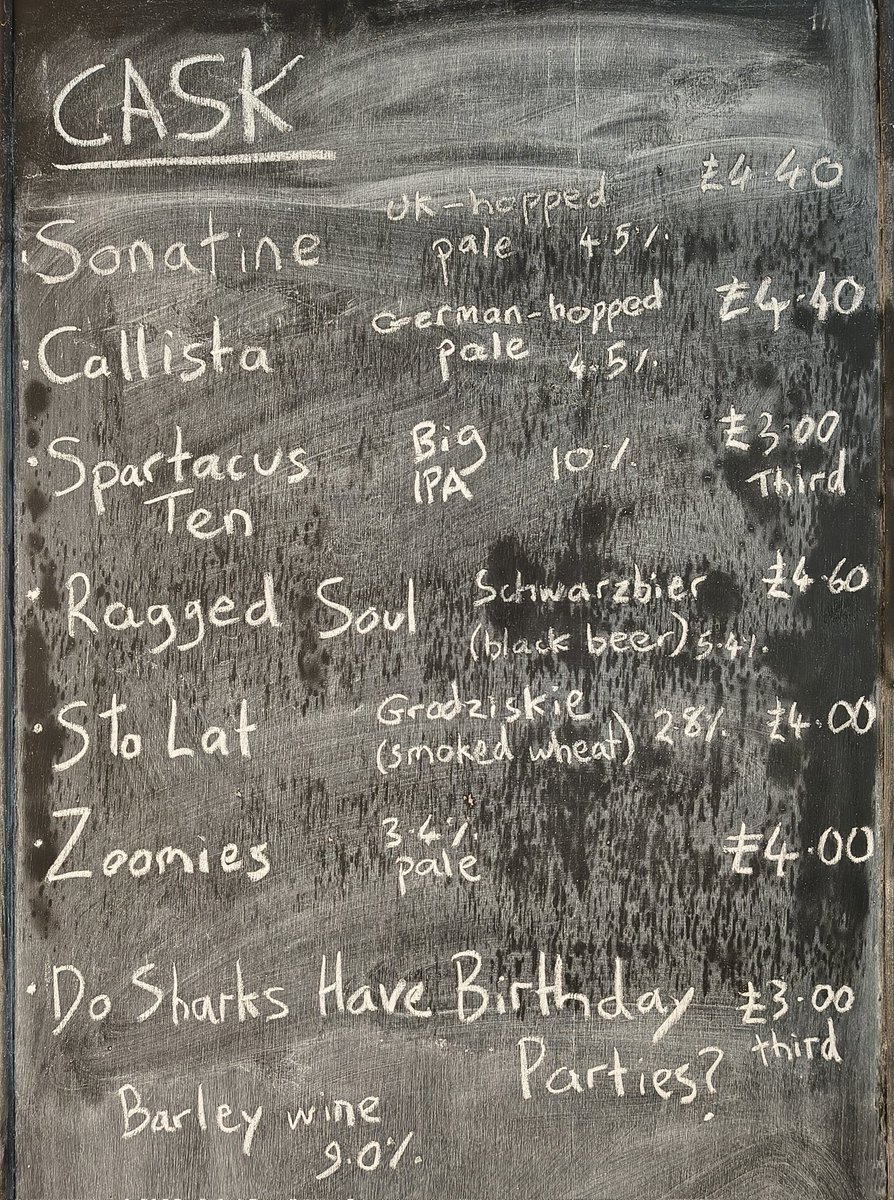 CASK
Sonatine UK-hopped pale 4.5% £4.40
Callista German-hopped pale 4.5% £4.40
Spartacus Ten Big IPA 10% £3.00 Third
Ragged Soul Schwarzbier (black beer) 5.4% £4.60
Sto Lat Grodziskie (smoked wheat) 2.8% £4.00
Zoomies 3.4% pale £4.00
Do Sharks Have Birthday Parties? £3.00 third
Barley wine 9.0%